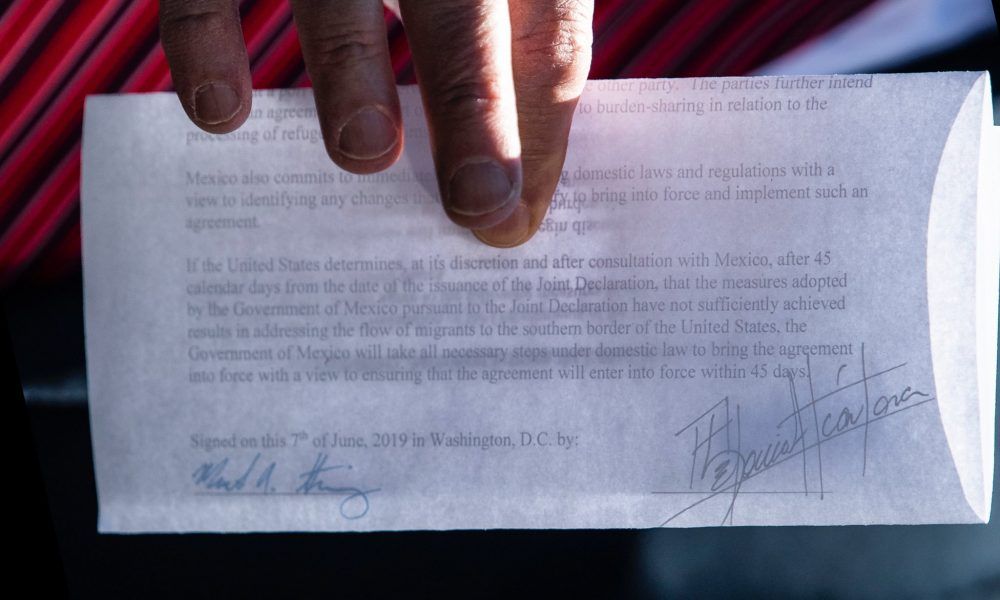 other party. The parties further intend
in agreem to burden-sharing in relation to the
processing of refug
Mexico also commits to immediate domestic laws and regulations with a
view to identifying any changes tha to bring into force and implement such an
agreement.
If the United States determines, at its discretion and after consultation with Mexico, after 45
calendar days from the date of the issuance of the Joint Declaration, that the measures adopted
by the Government of Mexico pursuant to the Joint Declaration have not sufficiently achieved
results in addressing the flow of migrants to the southern border of the United States, the
Government of Mexico will take all necessary steps under domestic law to bring the agreement
into force with a view to ensuring that the agreement will enter into force within 45 days.
Signed on this 7th of June, 2019 in Washington, D.C. by: